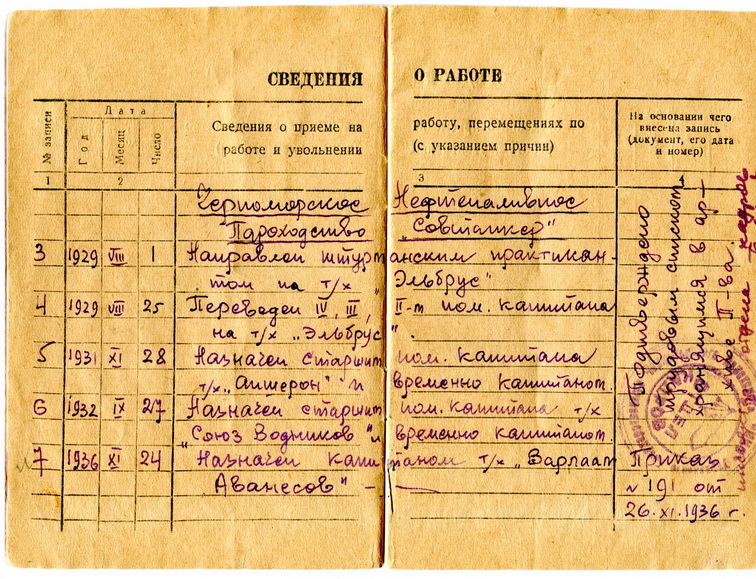 СВЕДЕНИЯ О РАБОТЕ
№ записи
Дата
Год
Месяц
Число
Сведения о приеме на работу, перемещениях по
работе и увольнении (с указанием причин)
На основании чего
внесена запись
(документ, его дата
и номер)
1 2 3 4
Черноморское Нефтеналивное
Пароходство "Совтанкер"
3 1929 VIII 1 Направлен штурманским практикан-
том на т/х "Эльбрус"
4 1929 VIII 25 Переведен IV, III, II-м пом. капитана
на т/х "Эльбрус".
5 1931 XI 28 Назначен старшим пом. капитана
т/х "Апшерон" и временно капитаном.
6 1932 IX 27 Назначен старшим пом. капитана т/х
"Союз Водников" и временно капитаном.
7 1936 XI 24 Назначен капитаном т/х "Варлаам
Аванесов" -
Подтверждено
трудовым списком
хранящимся в ар-
хиве П-ва.
Приказ
№ 191 от
26.XI.1936 г.
кадров